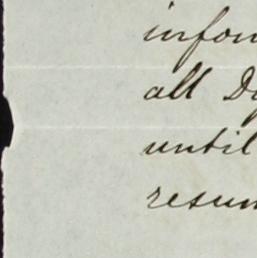 infor
all D
until
resum